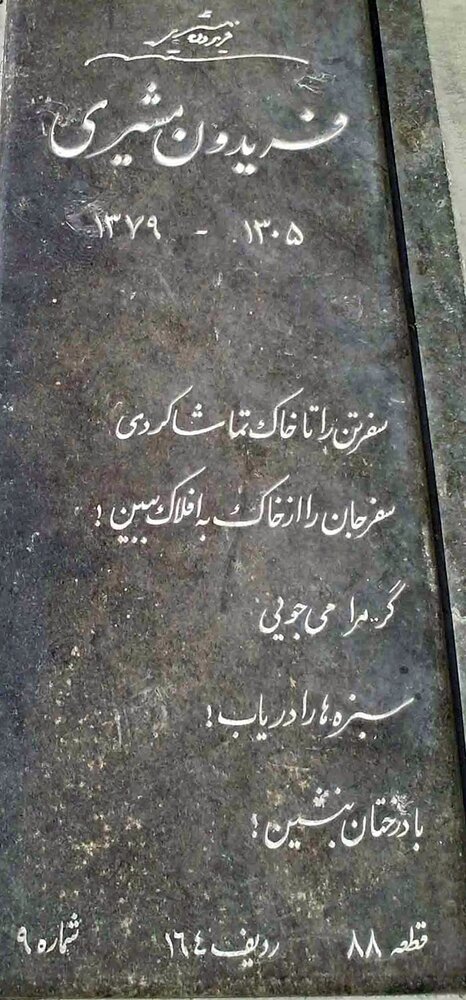 فریدون مشیری
فریدون مشیری
۱۳۰۵ - ۱۳۷۹
سفر تن را تا خاک تماشا کردی
سفر جان را از خاک به افلاک ببین !
گر مرا می جویی
سبزه ها را دریاب !
با درختان بنشین !
قطعه ۸۸ ردیف ۱٦٤ شماره ۹